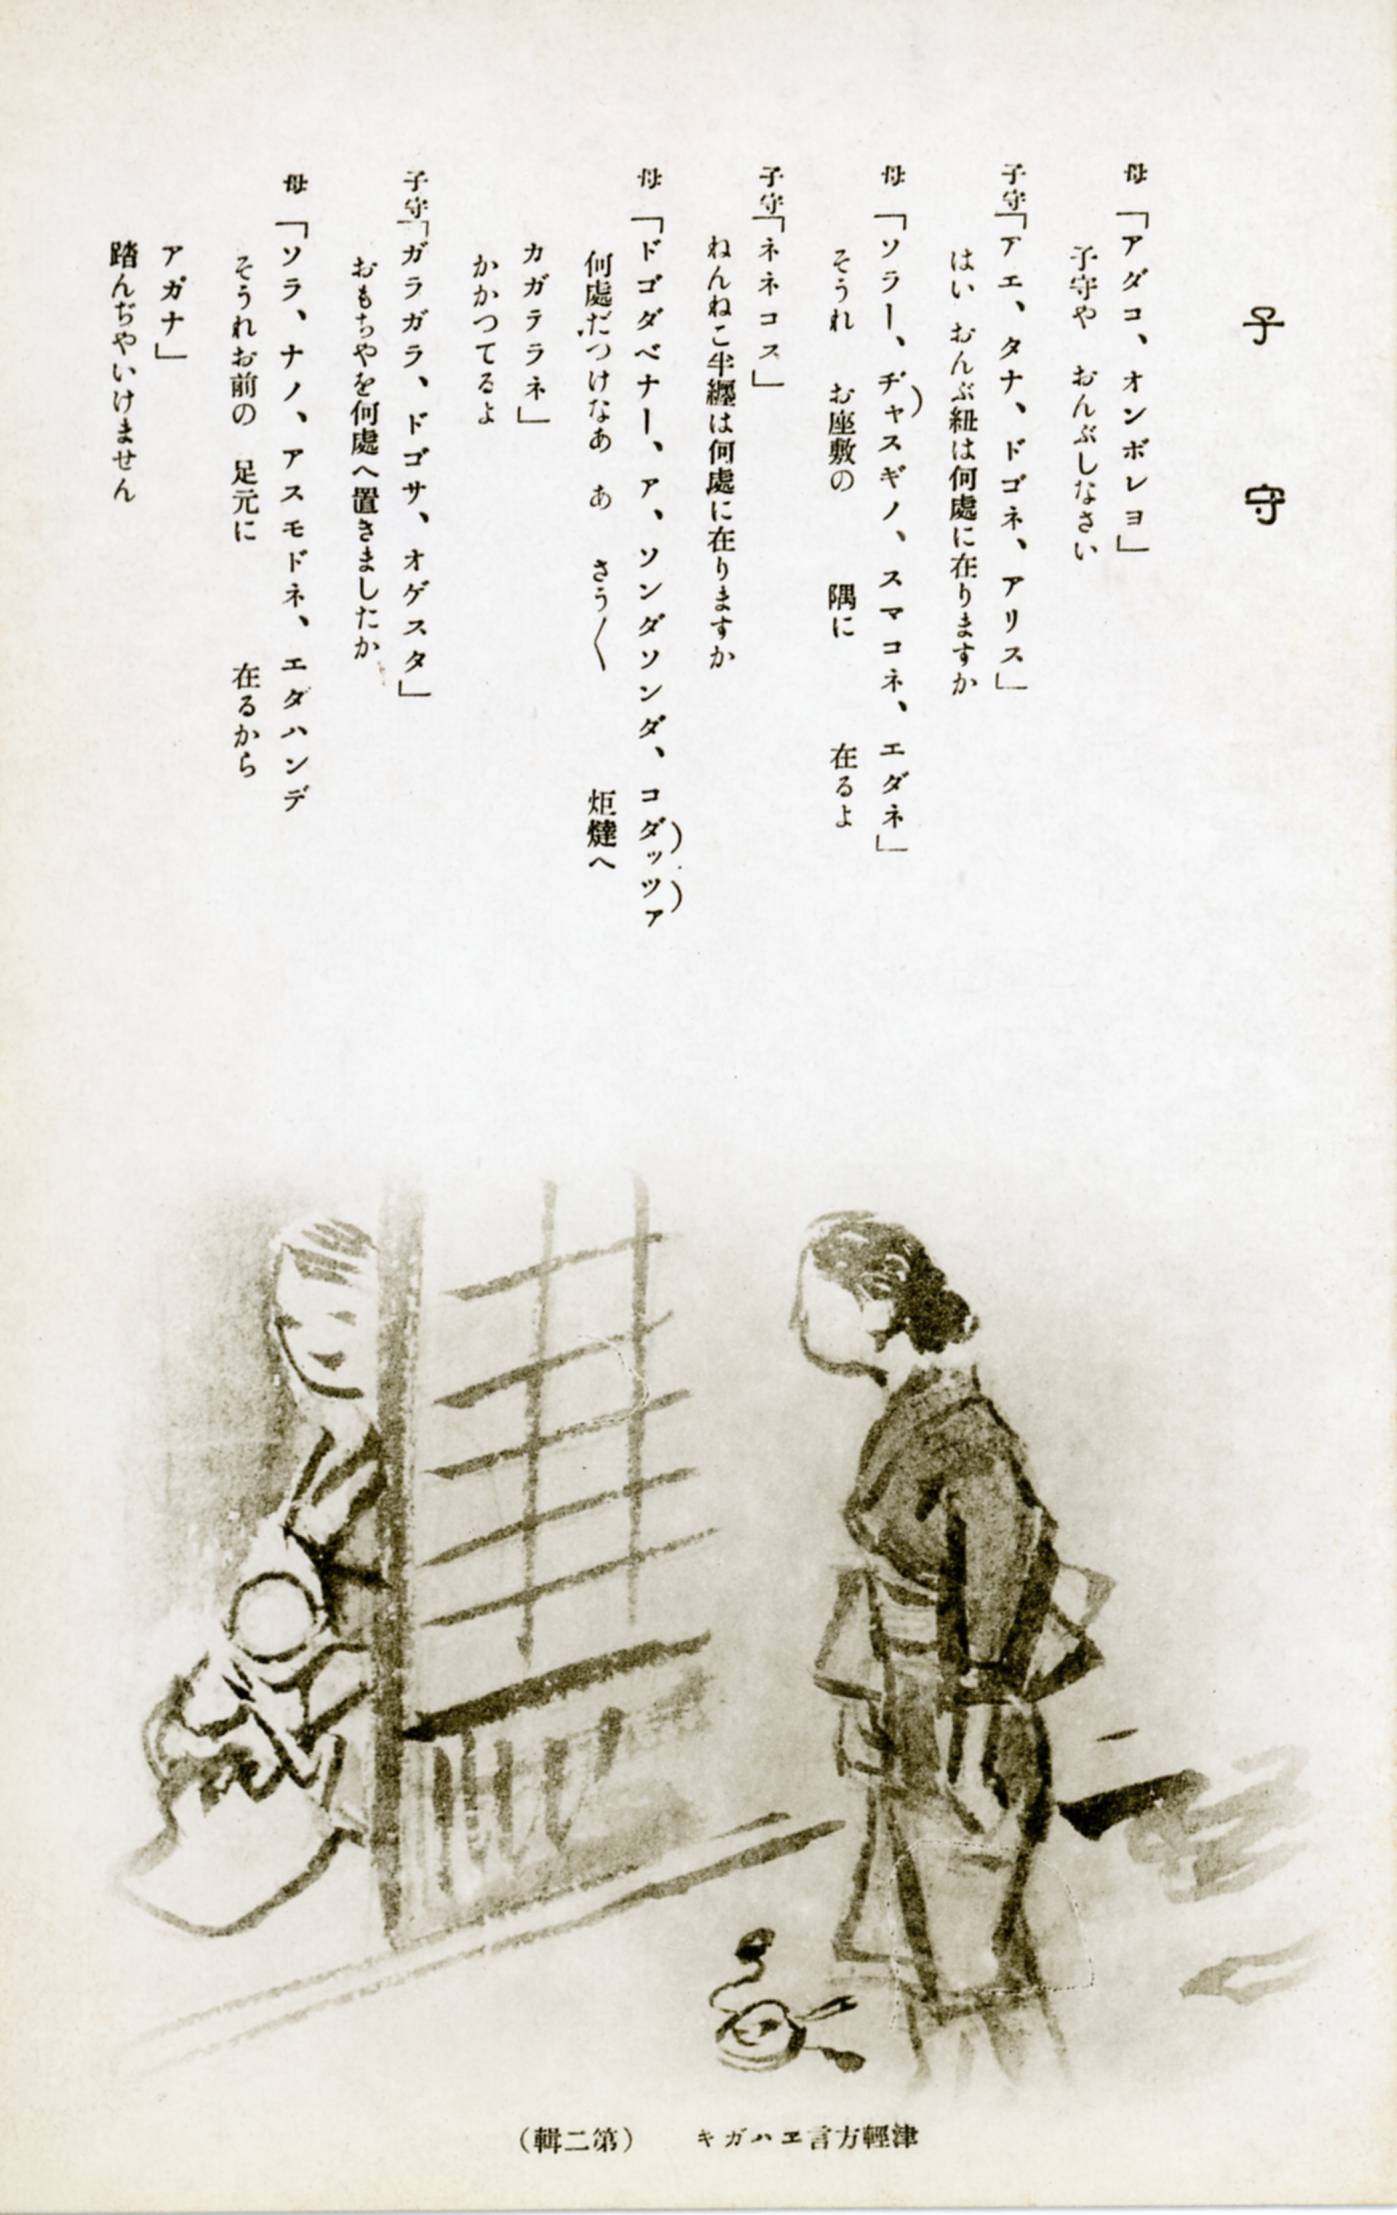 子守
母「アダコ、オンボレヨ」
子守や おんぶしなさい
子守「アエ、タナ、ドゴネ、アリス」
はい おんぶ紐は何處に在りますか
母「ソラー、ヂャスギノ、スマコネ、エダネ」
そうれ お座敷の 隅に 在るよ
子守「ネネコス」
ねんねこ半纏は何處に在りますか
母「ドゴダベナー、ア、ソンダソンダ、コダッツァ
何處だつけなあ あ さう〱 炬燵へ
カガララネ」
かかつてるよ
子守「ガラガラ、ドゴサ、オゲスタ」
おもちやを何處へ置きましたか
母「ソラ、ナノ、アスモドネ、エダハンデ
そうれお前の 足元に 在るから
アガナ」
踏んぢやいけません
津輕方言ヱハガキ (第二輯)